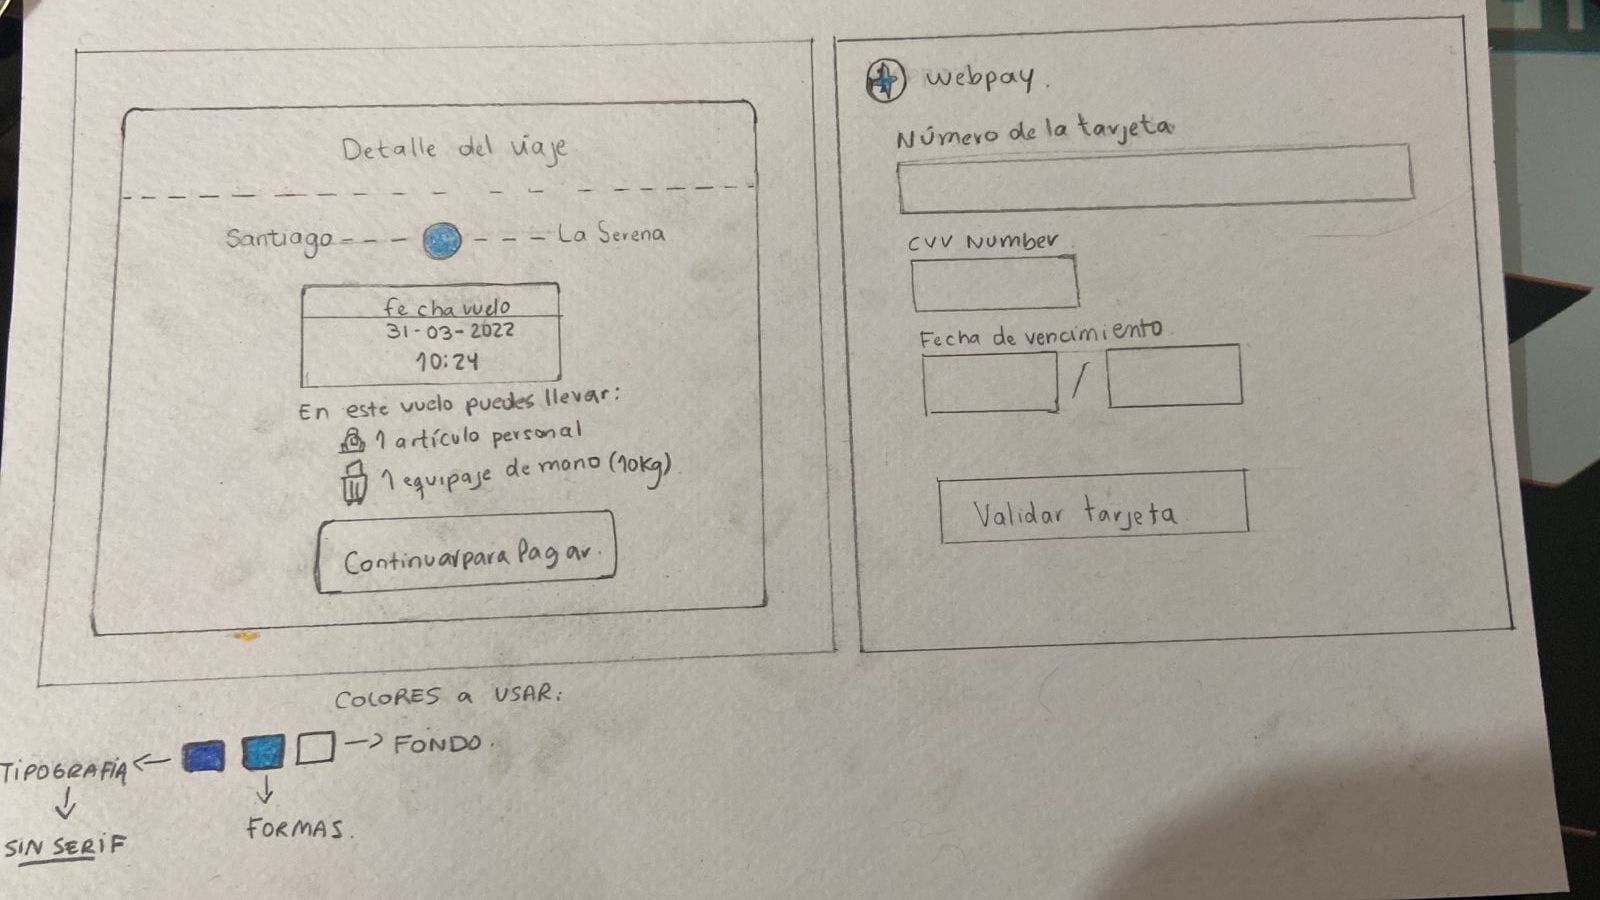 Detalle del viaje
Santiago --- --- La Serena
fecha vuelo
31-03-2022
10:24
En este vuelo puedes llevar:
1 artículo personal
1 equipaje de mano (10kg)
Continuar para Pagar.
webpay.
Número de la tarjeta
CVV Number
Fecha de vencimiento
/
Validar tarjeta
COLORES a USAR:
TIPOGRAFÍA ← → FONDO.
SIN SERIF
FORMAS.